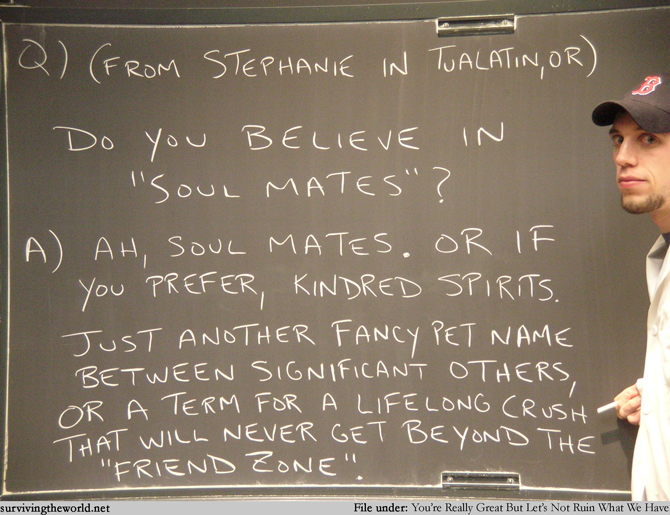 Q) (FROM STEPHANIE IN TUALATIN, OR)
DO YOU BELIEVE IN
"SOUL MATES"?
A) AH, SOUL MATES. OR IF
YOU PREFER, KINDRED SPIRITS.
JUST ANOTHER FANCY PET NAME
BETWEEN SIGNIFICANT OTHERS,
OR A TERM FOR A LIFELONG CRUSH
THAT WILL NEVER GET BEYOND THE
"FRIEND ZONE".
B
survivingtheworld.net
File under: You're Really Great But Let's Not Ruin What We Have